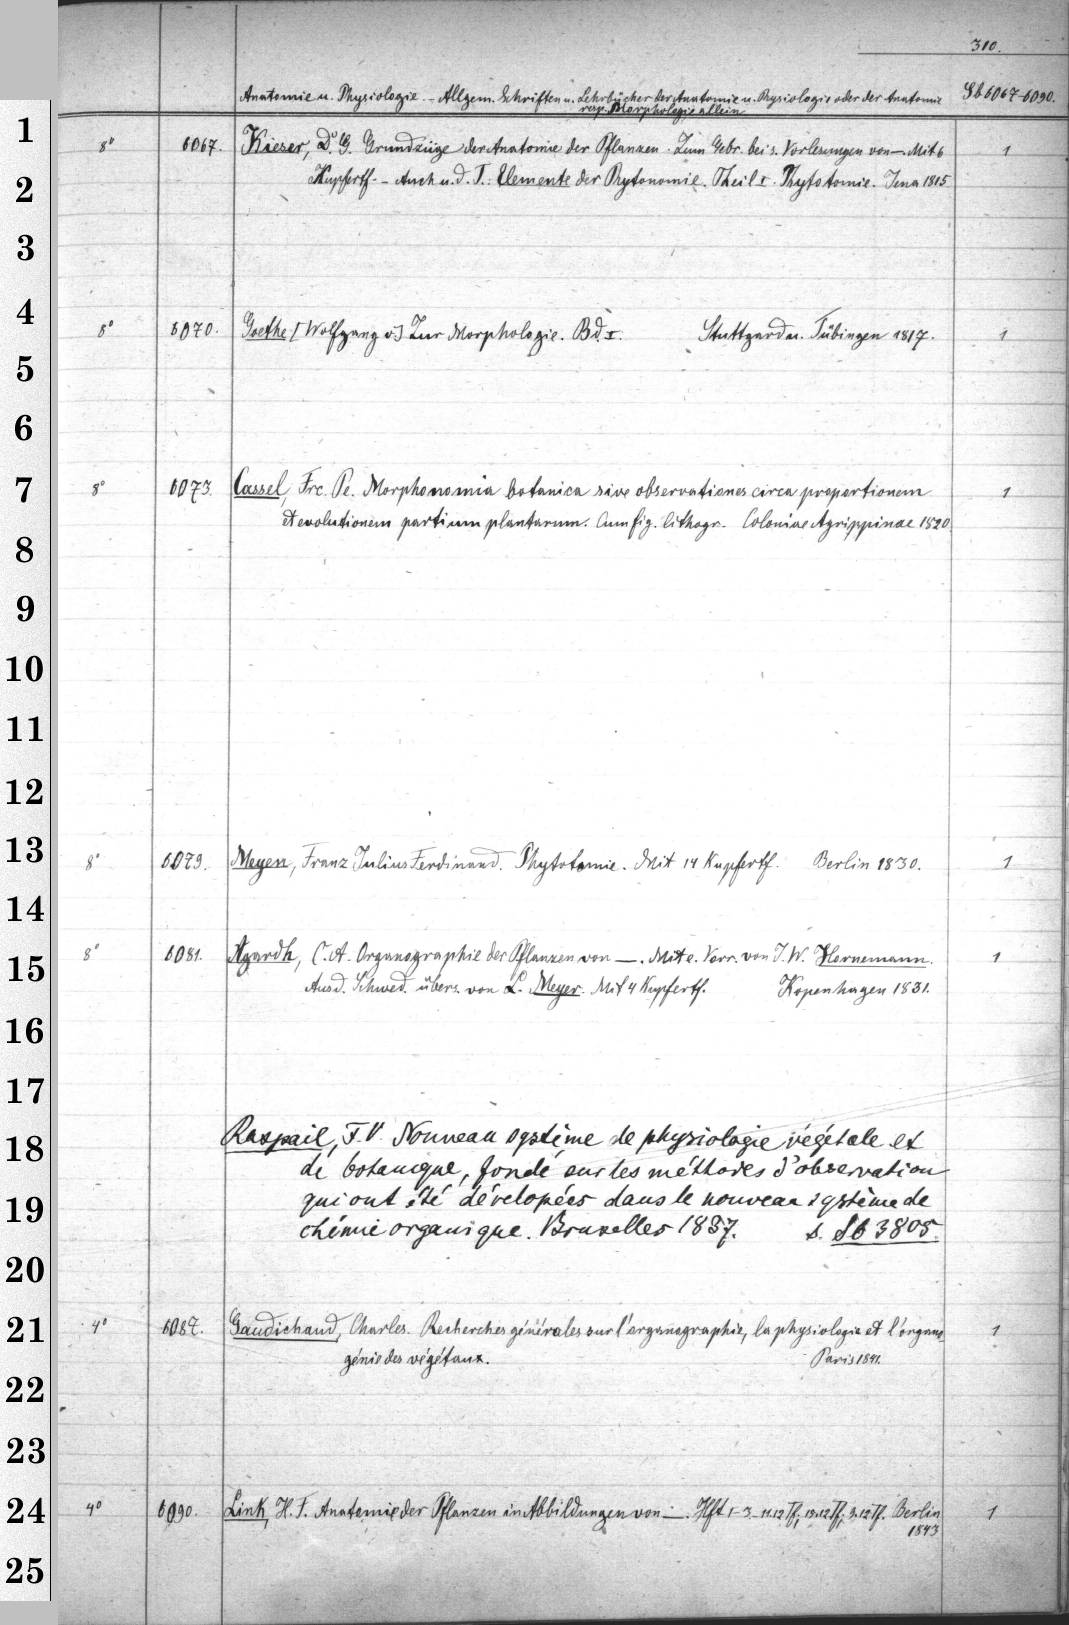 310.
Anatomie u. Physiologie. - Allgem. Schriften u. Lehrbücher der Anatomie u. Physiologie oder der Anatomie Sb 6067-6090.
resp. Morphologie allein
1
8° 6067. Kieser, D. G. Grundzüge der Anatomie der Pflanzen. Zum Gebr. bei s. Vorlesungen von —. Mit 6 1
2
Kupfertf. - Auch u. d. T.: Elemente der Phytonomie. Theil I. Phytotomie. Jena 1815
3
4
8° 6070. Goethe [Wolfgang v.] Zur Morphologie. Bd. I. Stuttgard u. Tübingen 1817. 1
5
6
7
8° 6073. Cassel, Frc. Pe. Morphonomia botanica sive observationes circa proportionem 1
et evolutionem partium plantarum. Cum fig. lithogr. Coloniae Agrippinae 1820
8
9
10
11
12
13
8° 6079. Meyen, Franz Julius Ferdinand. Phytotomie. Mit 14 Kupfertf. Berlin 1830. 1
14
8° 6081. Agardh, C. A. Organographie der Pflanzen von —. Mit e. Vorr. von J. W. Hornemann. 1
15
Aus d. Schwed. übers. von L. Meyer. Mit 4 Kupfertf. Kopenhagen 1831.
16
17
18
Raspail, F. V. Nouveau système de physiologie végétale et
de botanique, fondé sur les méthodes d'observation
19
qui ont été dévelopées dans le nouveau système de
chimie organique. Bruxelles 1837. s. Sb 3805.
20
21
4° 6087. Gaudichaud, Charles. Recherches générales sur l'organographie, la physiologie et l'organo 1
génie des végétaux. Paris 1841.
22
23
24
4° 6090. Link, H. F. Anatomie der Pflanzen in Abbildungen von —. Hft 1-3 Berlin 1
1843
25